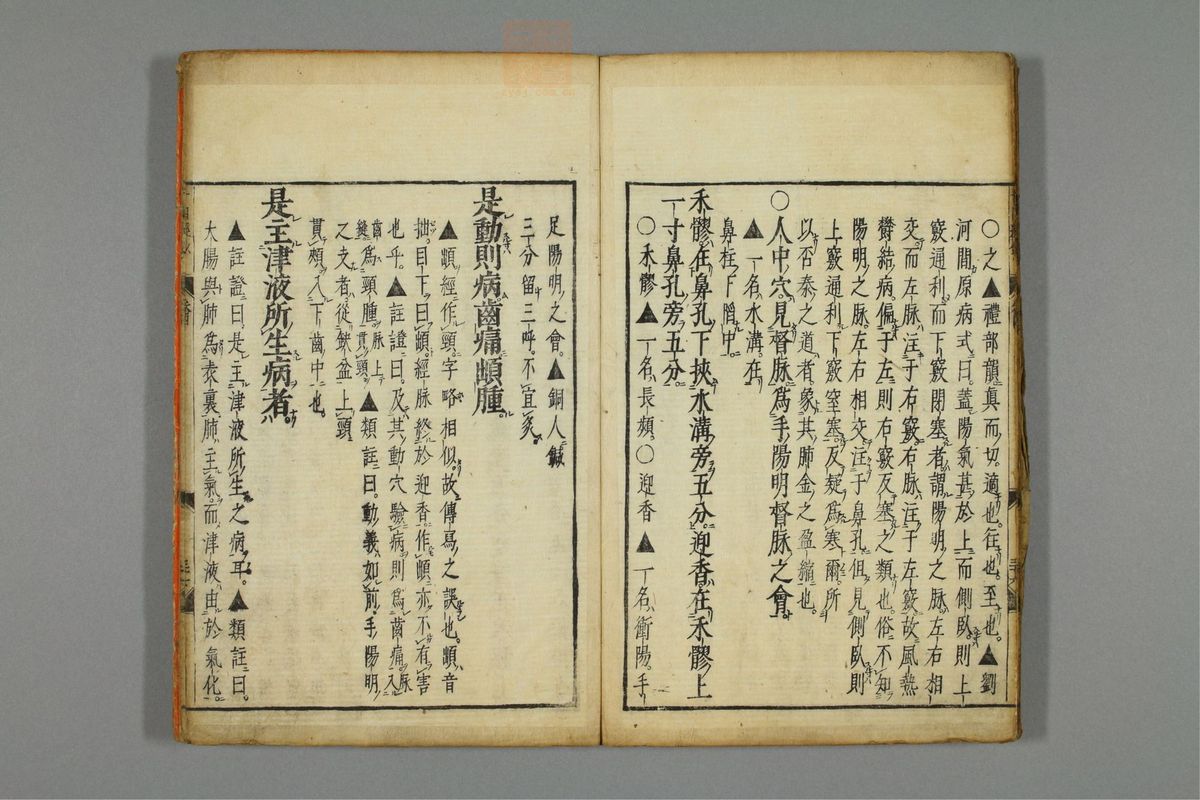 〇之▲禮部韻眞而切適也往也至也▲劉
河間原病式曰蓋陽氣甚於上而側臥則上
竅通利而下竅閉塞者謂陽明之脉左右相
交而左脉注于右竅右脉注于左竅故風熱
欝結病偏于左則右竅反塞之類也俗不知
陽明之脉左右相交注于鼻孔但見側臥則
上竅通利下竅窒塞反疑爲寒爾所
以否泰之道者象其肺金之盈縮也
〇人中穴見督脉爲手陽明督脉之會
▲一名水溝在
鼻柱下䐃中
禾髎在鼻孔下挾水溝旁五分迎香在禾髎上
一寸鼻孔旁五分
〇禾髎▲一名長頻〇迎香▲一名衝陽手
足陽明之會▲銅人鍼
三分留三呼不宜灸
是動則病齒痛䪼腫
▲䪼經作頸字略相似故傳寫之誤也䪼音
拙目下曰䪼經脉終於迎香作䪼亦不有害
也乎▲註證曰及其動穴驗病則爲齒痛脉入
齒縫爲頸腫脉上貫頸▲類註曰動義如前手陽明
之支者從缺盆上頸
貫頰入下齒中也
是主津液所生病者
▲註證曰是主津液所生之病耳▲類註曰
大腸與肺爲表裏肺主氣而津液由於氣化